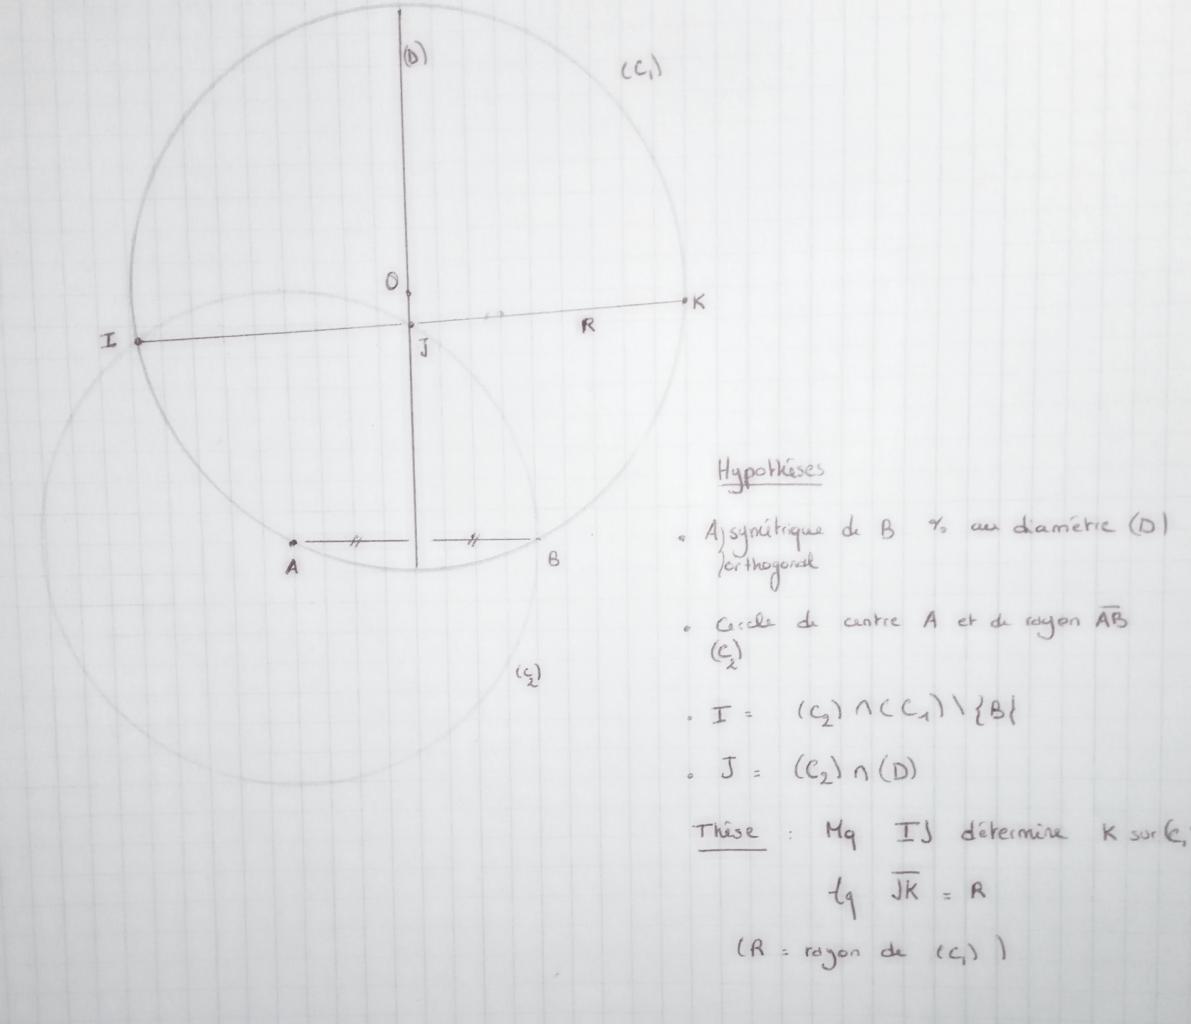 (D)
(C₁)
O
K
I
R
J
A
B
(C₂)
Hypothèses
• A, symétrique de B % au diamètre (D)
/orthogonal
• Cercle de centre A et de rayon A̅B̅
(C₂)
• I = (C₂) ∩ (C₁) \ {B{
• J = (C₂) ∩ (D)
Thèse : Mq IJ détermine K sur C₁
tq J̅K̅ = R
(R = rayon de (C₁))